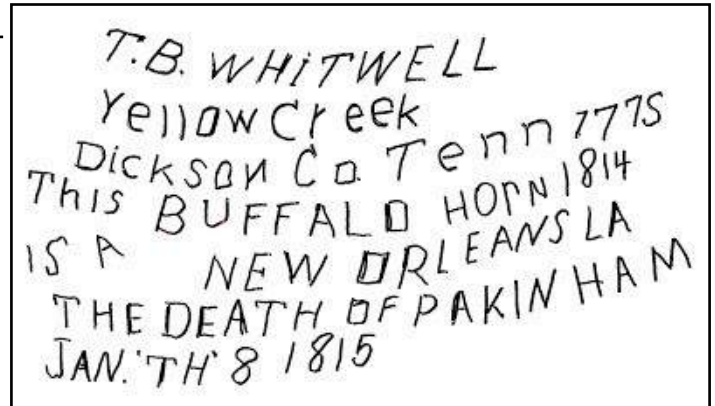 T.B. WHiTWELL
YellowCreek
Dickson Co. Tenn 1775
This BUFFALO HOrN 1814
IS A NEW ORLEANS LA
THE DEATH OF PAKIN HAM
JAN. 'TH' 8 1815